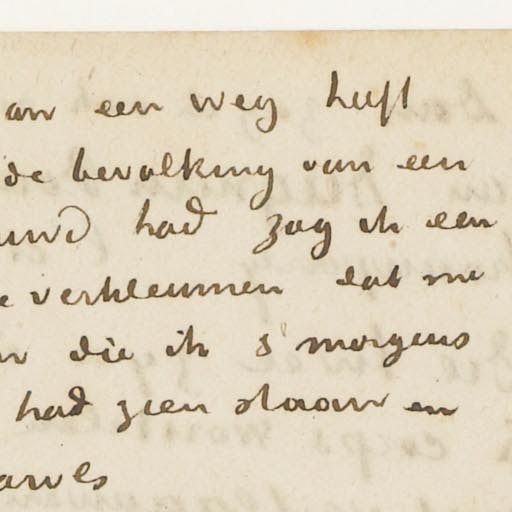 an een weg heeft
de bevolking van een
had zag ik een
verkleumen dat me
die ik s' morgens
had zien staan en